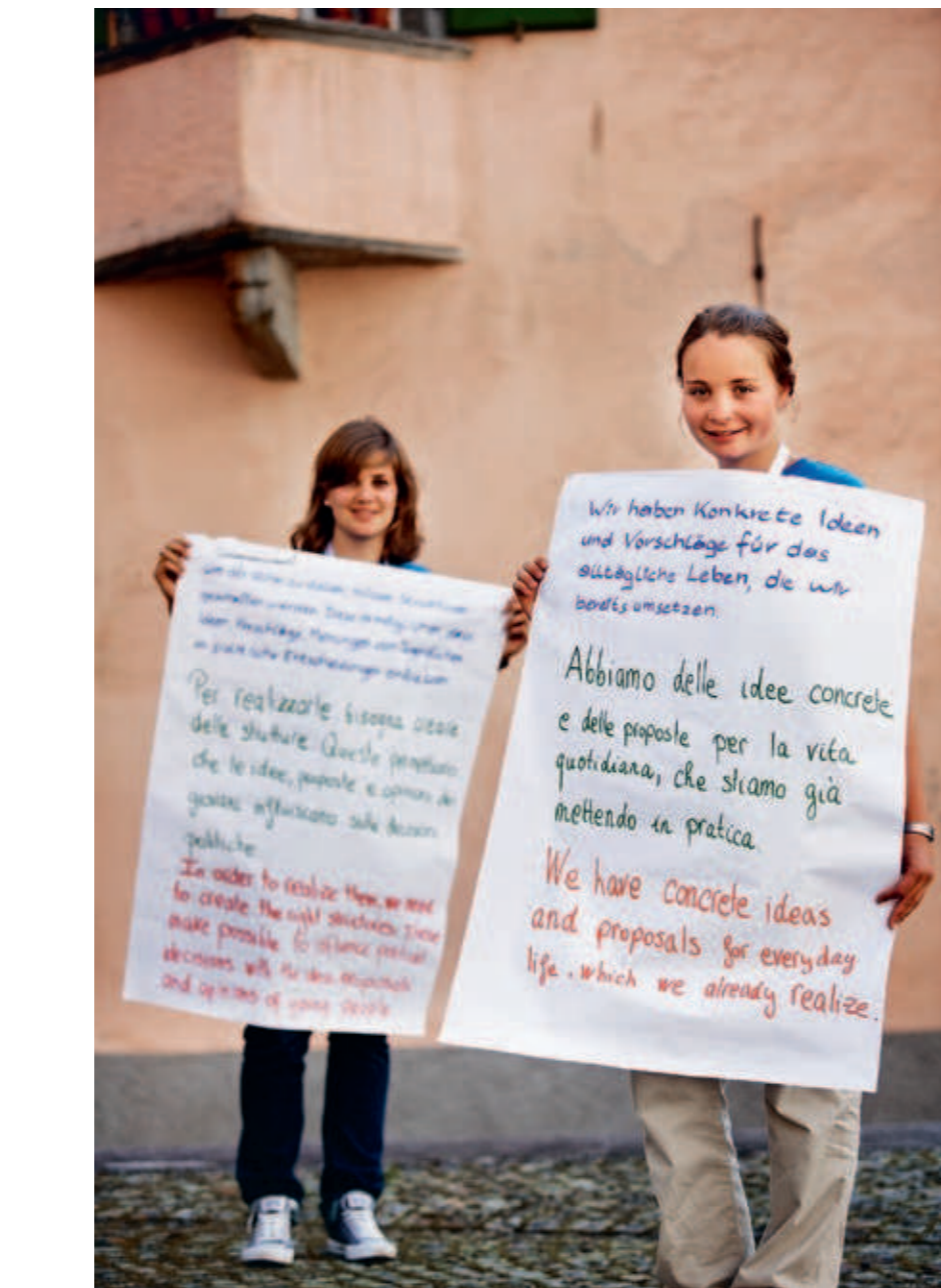 Per realizzarle bisogna creare
delle strutture. Queste permettono
che le idee, proposte e opinioni dei
giovani influiscano sulle decisioni
politiche.
In order to realize them, we need
to create the right structures. These
make possible to influence political
decisions with the ideas, proposals
and opinions of young people.
Wir haben Konkrete Ideen
und Vorschläge für das
alltägliche Leben, die wir
bereits umsetzen.
Abbiamo delle idee concrete
e delle proposte per la vita
quotidiana, che stiamo già
mettendo in pratica.
We have concrete ideas
and proposals for everyday
life, which we already realize.